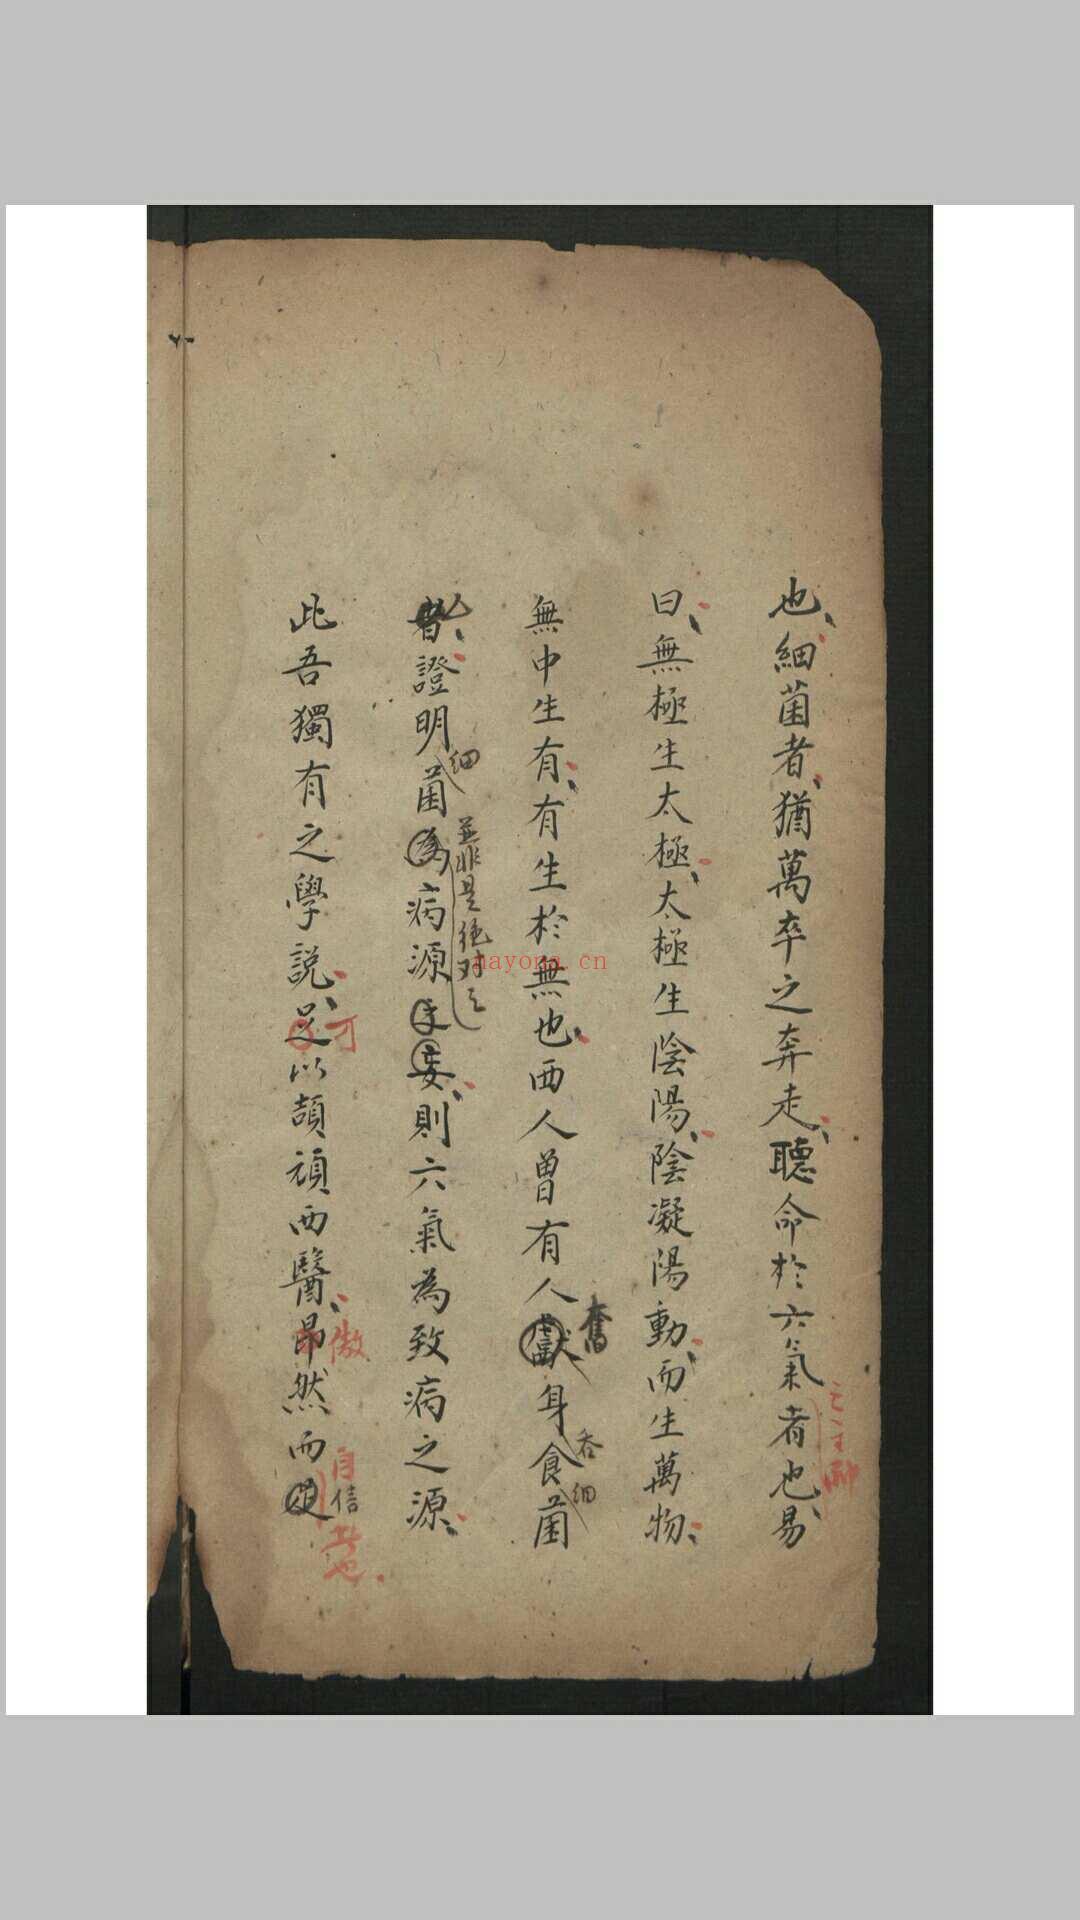 也細菌者猶萬卒之奔走聽命於六氣者也易
曰無極生太極太極生陰陽陰凝陽動而生萬物
無中生有有生於無也西人曾有人獻身食菌
奮
吞細
者證明菌為病源之妄則六氣為致病之源
細
並非是絕对之
此吾獨有之學說足以頡頏西醫昂然而起
可
傲
自信
者也
nayona.cn